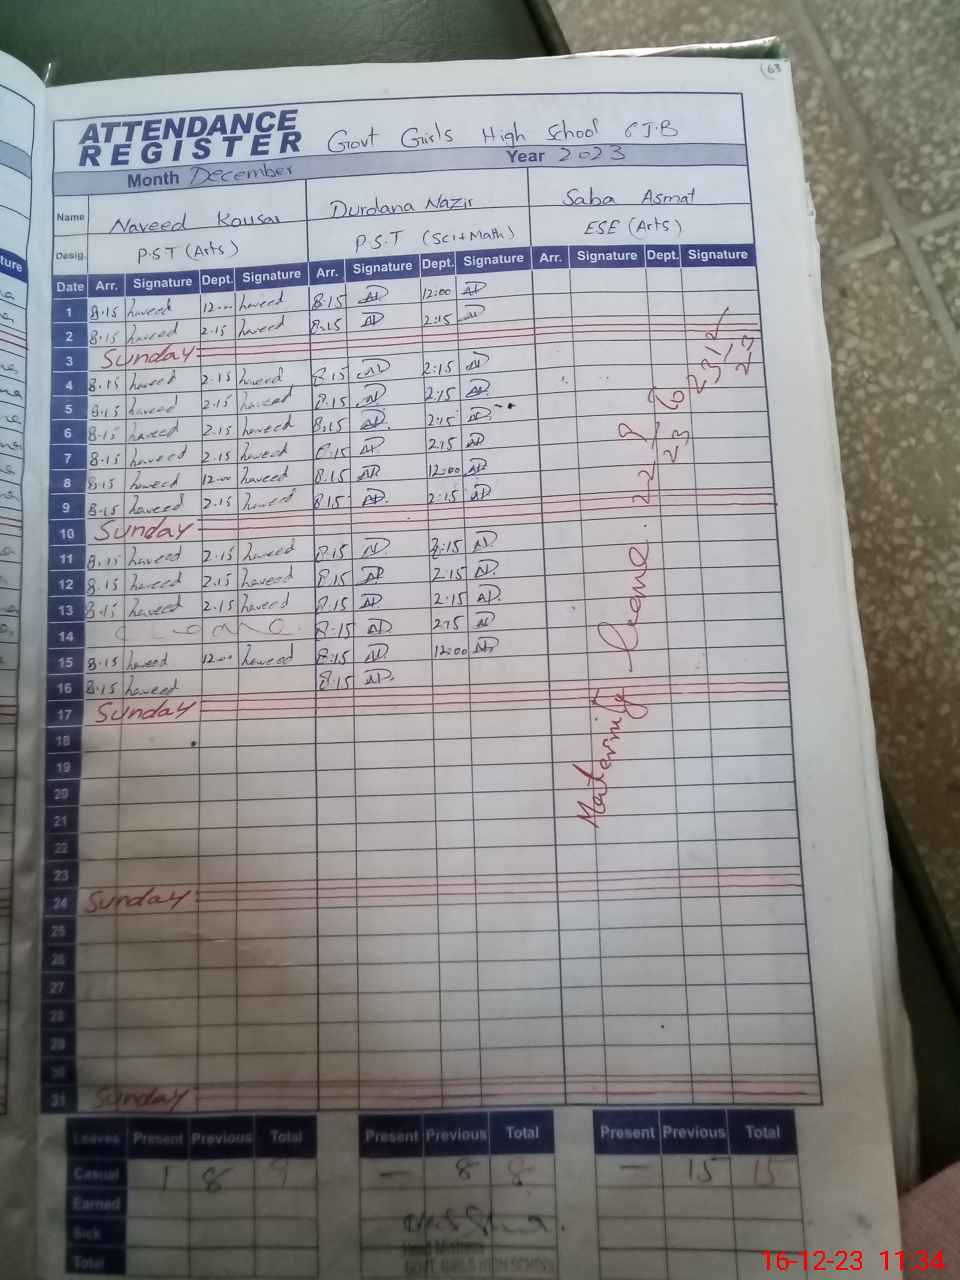 63
ATTENDANCE
REGISTER
Govt Girls High School 6 J.B
Month December Year 2023
Name Naveed Kousar Durdana Nazir Saba Asmat
Desig. P.S.T (Arts) P.S.T (Sci+Math) ESE (Arts)
Date Arr. Signature Dept. Signature Arr. Signature Dept. Signature Arr. Signature Dept. Signature
1 8.15 haveed 12.00 haveed 8.15 12:00
2 8.15 haveed 2.15 haveed 8.15 2:15
3 Sunday
4 8.15 haveed 2.15 haveed 8.15 2:15
5 8.15 haveed 2.15 haveed 8.15 2:15
6 8.15 haveed 2.15 haveed 8.15 2:15
7 8.15 haveed 2.15 haveed 8.15 2:15
8 8.15 haveed 12.00 haveed 8.15 12:00
9 8.15 haveed 2.15 haveed 8.15 2:15
10 Sunday
11 8.15 haveed 2.15 haveed 8.15 2:15
12 8.15 haveed 2.15 haveed 8.15 2:15
13 8.15 haveed 2.15 haveed 8.15 2:15
14 8.15 2:15
15 8.15 haveed 12.00 haveed 8.15 12:00
16 8.15 haveed 8.15
17 Sunday
18
19
20
21
22
23
24 Sunday
25
26
27
28
29
30
31 Sunday
Maternity Leave
Leaves Present Previous Total Present Previous Total Present Previous Total
Casual 1 8 9 — 8 8 — 15 15
Earned
Sick
Total
GOVT. GIRLS HIGH SCHOOL
16-12-23 11:34